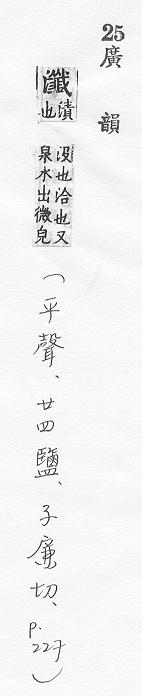 25廣韻
瀸漬也
沒也洽也又
泉水出微皃
(平聲、廿四鹽、子廉切、p.227)